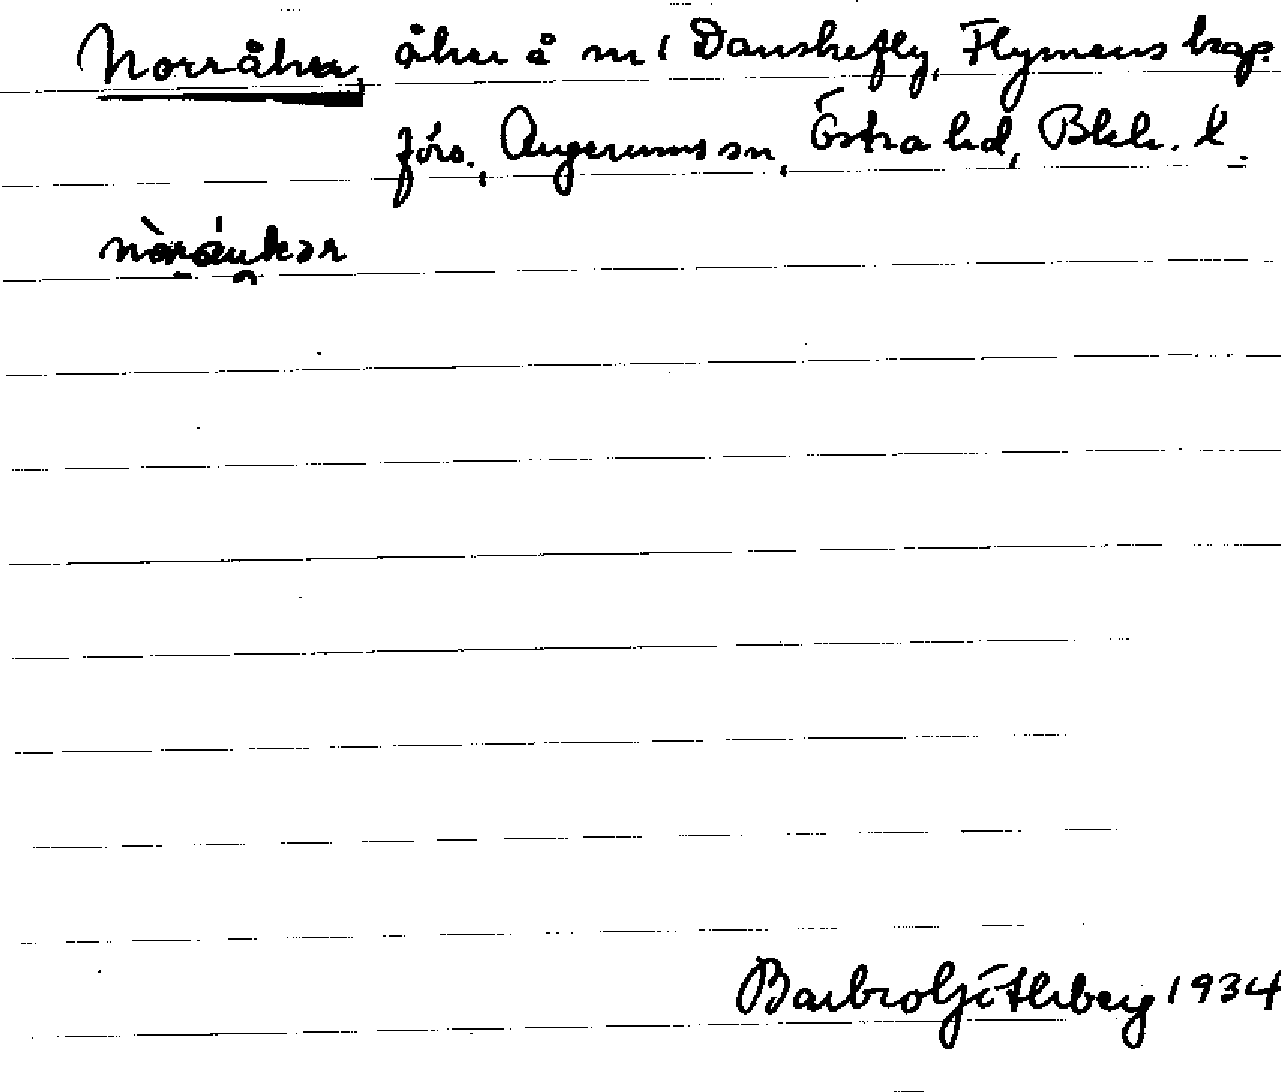 Norråker, åker å nr 1 Danskefly, Flymens kap.
förs., Augerums sn, Östra hd, Blek. l.
nòráukər
Barbro Götherberg 1934